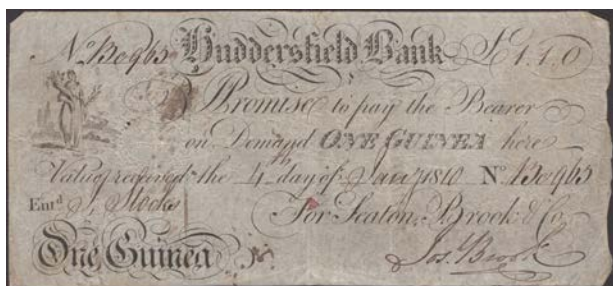 No. B0965 Huddersfield Bank £1.1.0
I Promise to pay the Bearer
on Demand ONE GUINEA here
Value received the 4th day of Jany 1810 No. B0965
Entd J. Stocks
For Seaton, Brook & Co.
One Guinea Jos. Brook